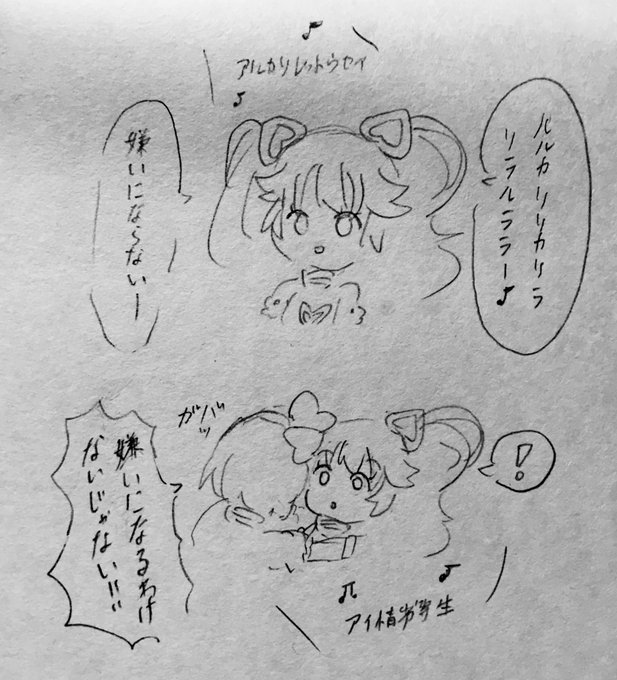 アルカリレットウセイ
ハルカリリカリラ
リラルララー♪
嫌いにならないー
!
ガバッ
嫌いになるわけ
ないじゃない!!!
アイ情劣等生